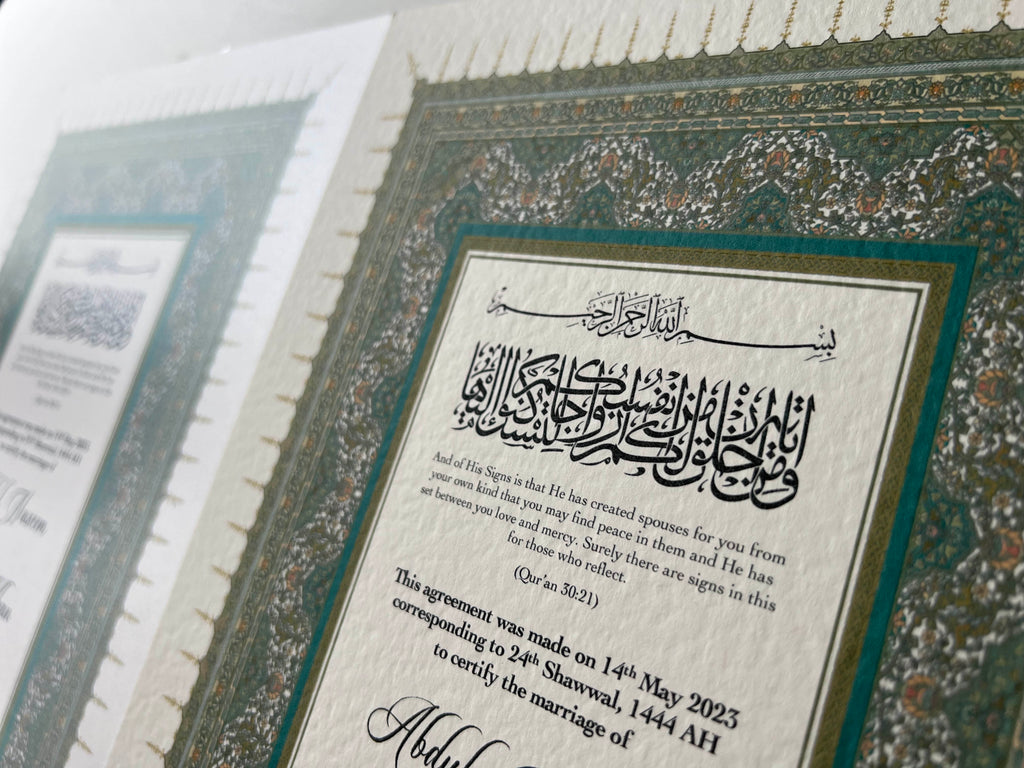 بسم الله الرحمن الرحيم
ومن آياته أن خلق لكم من أنفسكم أزواجا لتسكنوا إليها
And of His Signs is that He has created spouses for you from
your own kind that you may find peace in them and He has
set between you love and mercy. Surely there are signs in this
for those who reflect.
(Qur'an 30:21)
This agreement was made on 14th May 2023
corresponding to 24th Shawwal, 1444 AH
to certify the marriage of
Abdul